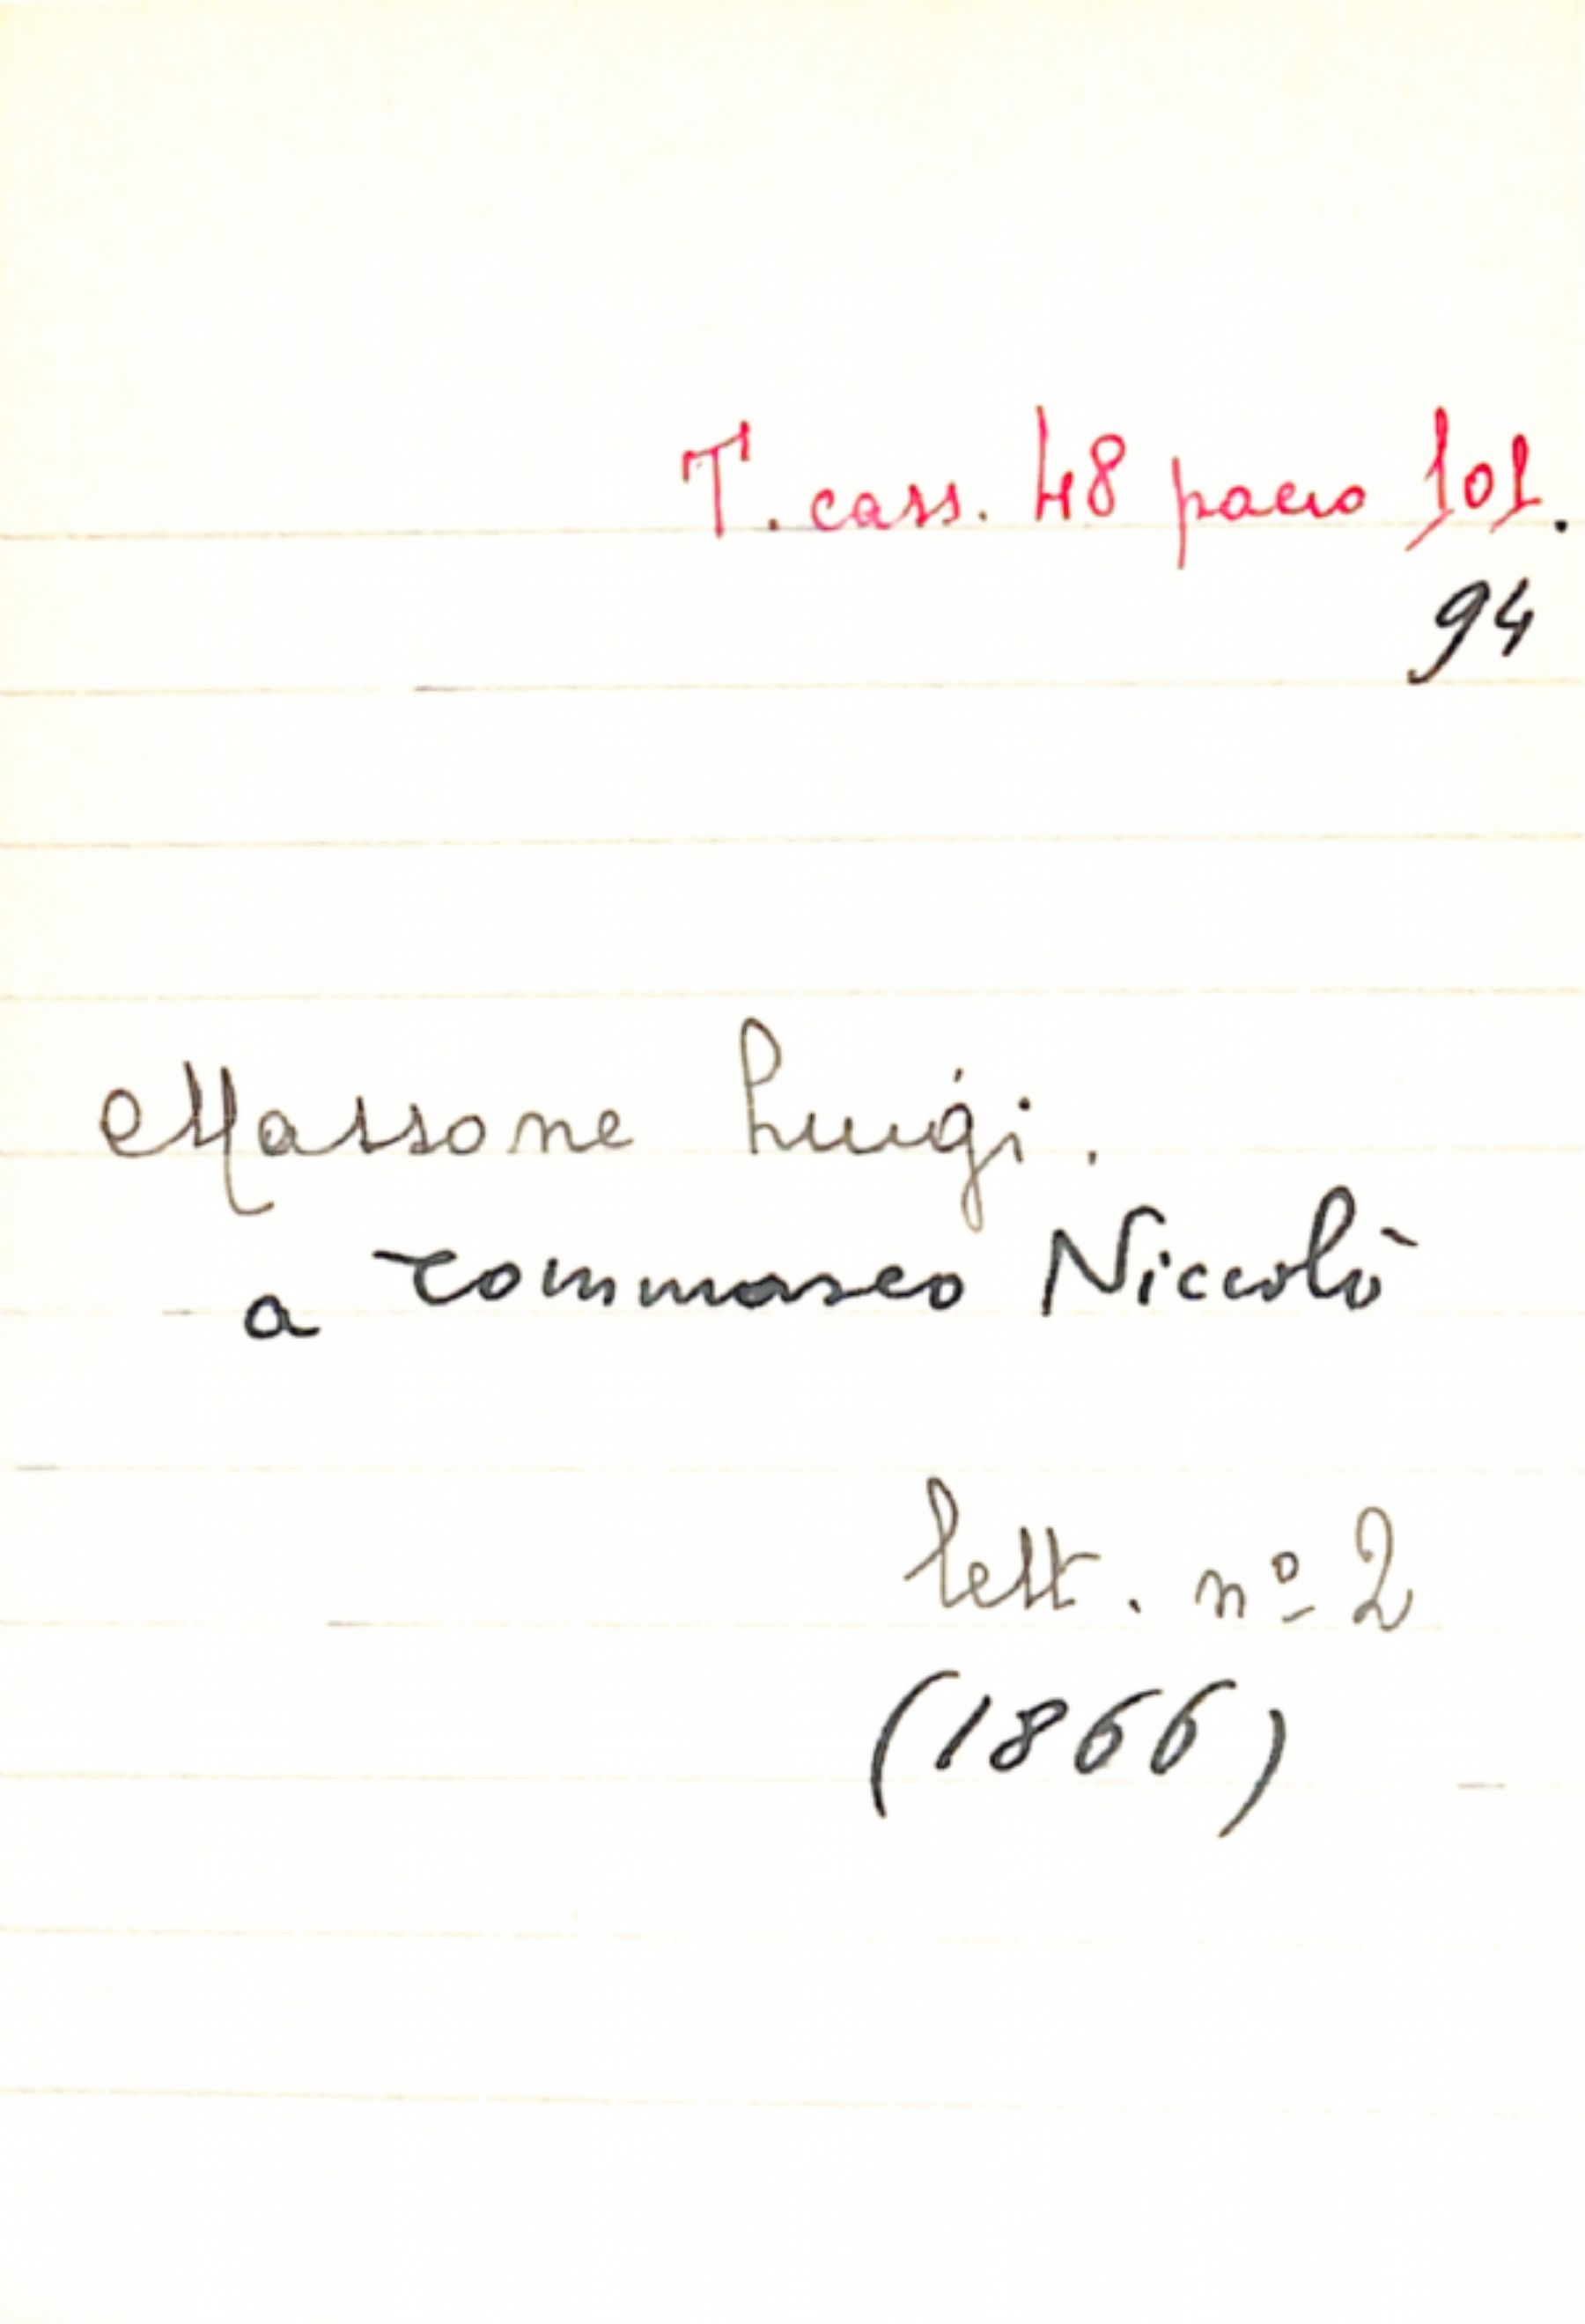 T. cass. 48 pacco 101.
94
Massone Luigi.
a Tommaseo Niccolò
lett. nº 2
(1866)